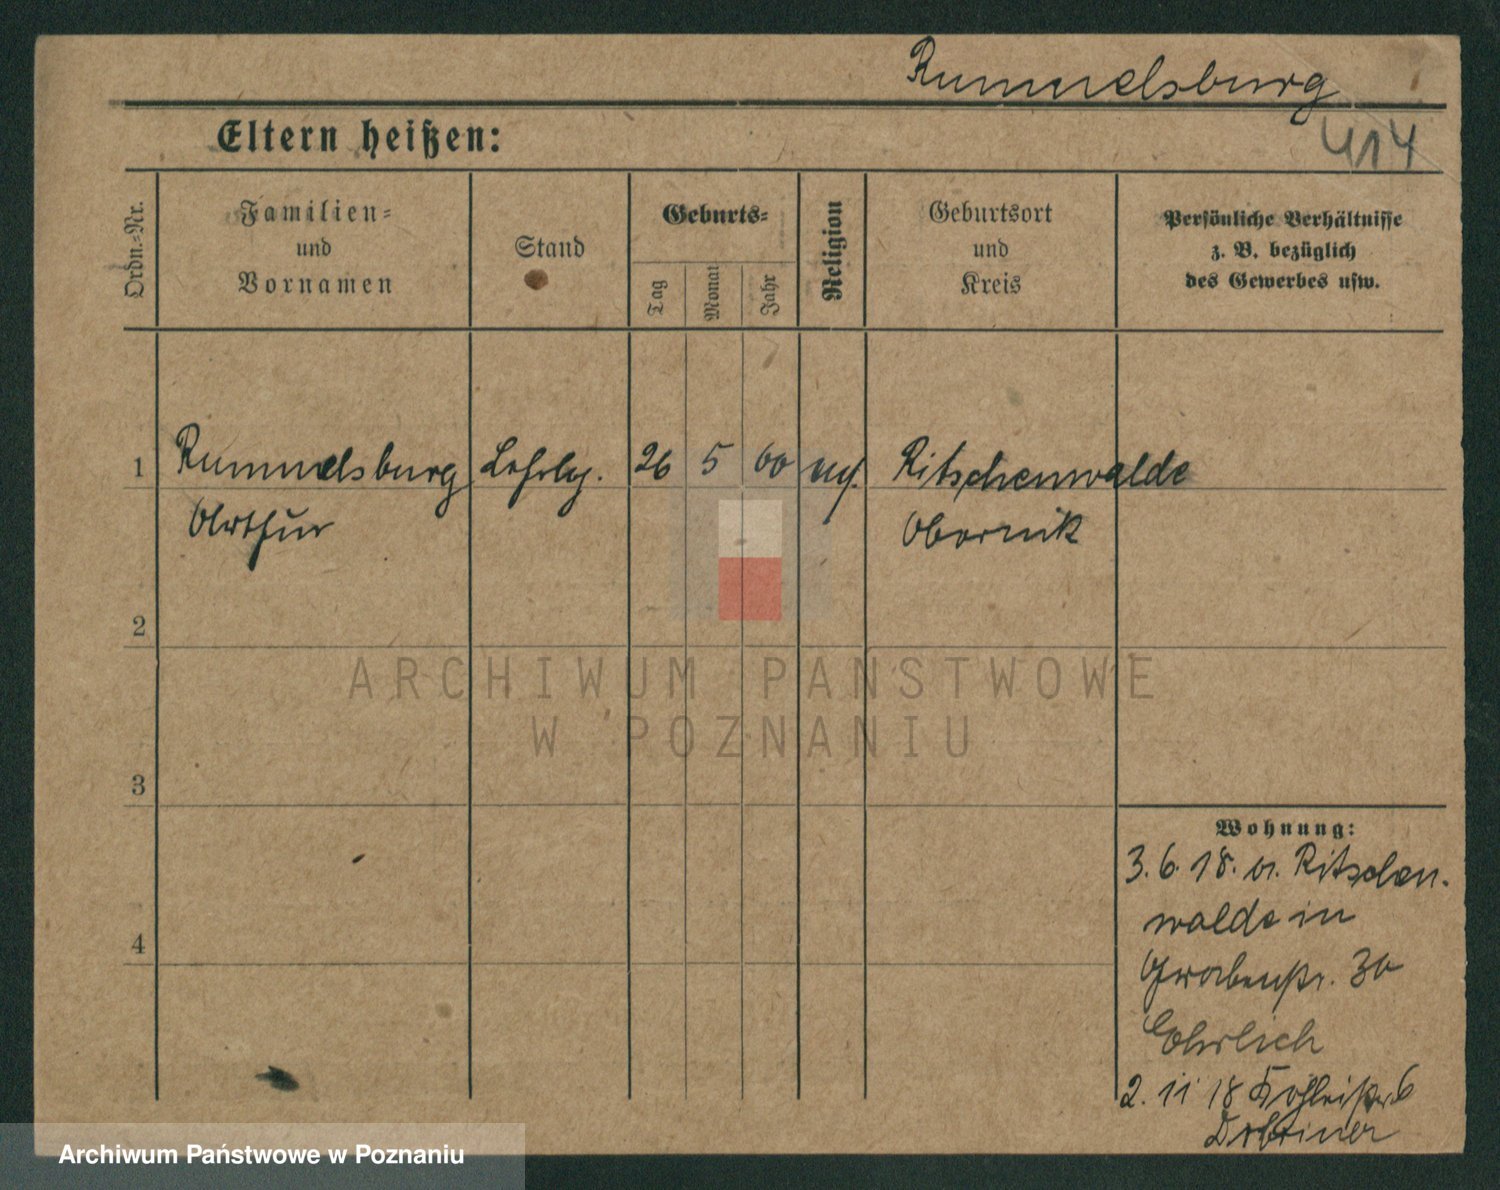 Rummelsburg
414
Eltern heißen:
Ordn.=Nr.
Familien=
und
Vornamen
Stand
Geburts=
Tag
Monat
Jahr
Religion
Geburtsort
und
Kreis
Persönliche Verhältnisse
z. B. bezüglich
des Gewerbes usw.
1 Rummelsburg Lehrlg. 26 5 00 Ritschenwalde
Arthur Obornik
2
3
4
Wohnung:
3. 6. 18. v. Ritschen-
walde in
Grabenstr. 30
Ehrlich
2. 11 18 6
ARCHIWUM PAŃSTWOWE
W POZNANIU
Archiwum Państwowe w Poznaniu